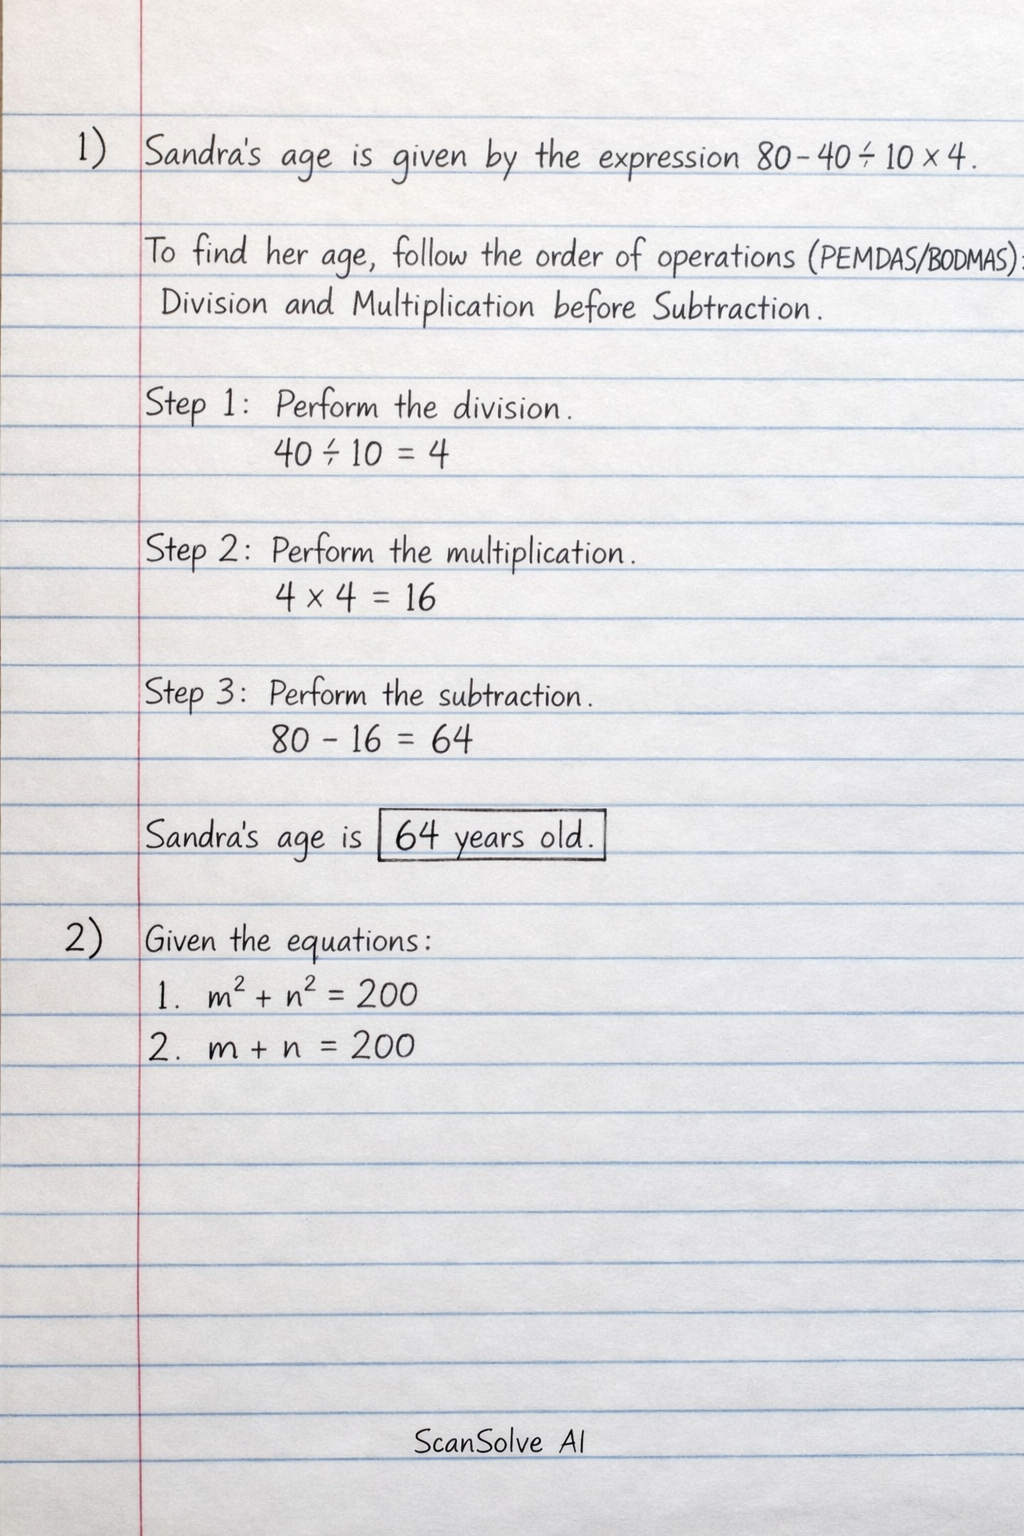 1) Sandra's age is given by the expression 80 - 40 ÷ 10 × 4.
To find her age, follow the order of operations (PEMDAS/BODMAS):
Division and Multiplication before Subtraction.
Step 1: Perform the division.
40 ÷ 10 = 4
Step 2: Perform the multiplication.
4 × 4 = 16
Step 3: Perform the subtraction.
80 - 16 = 64
Sandra's age is 64 years old.
2) Given the equations:
1. m² + n² = 200
2. m + n = 200
ScanSolve AI